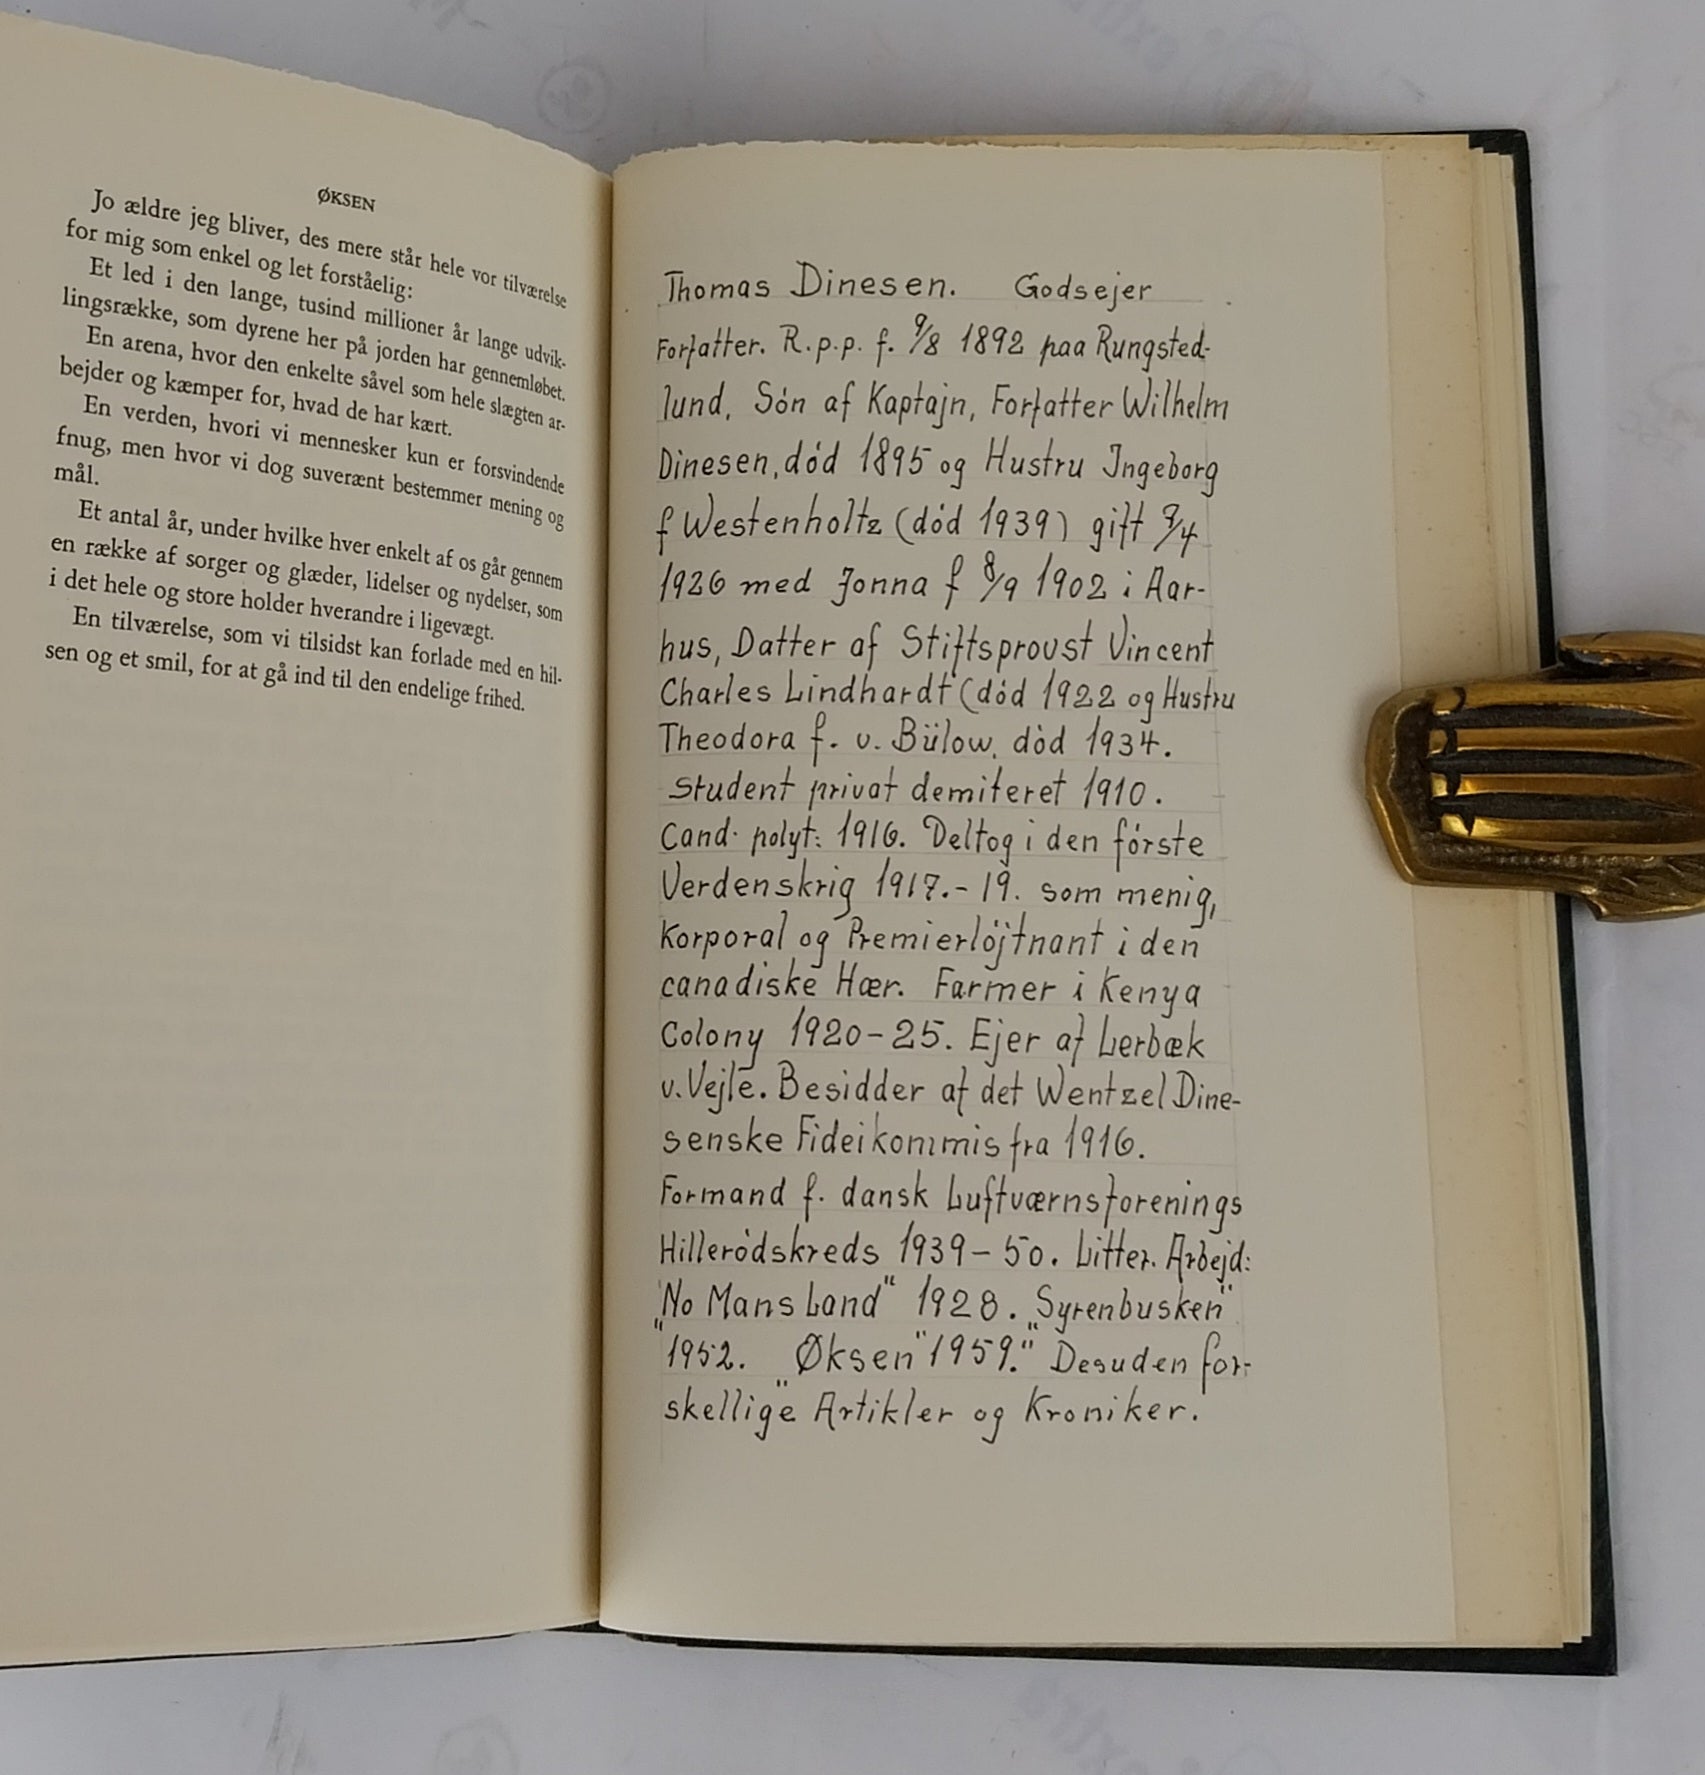 ØKSEN
Jo ældre jeg bliver, des mere står hele vor tilværelse
for mig som enkel og let forståelig:
Et led i den lange, tusind millioner år lange udvik-
lingsrække, som dyrene her på jorden har gennemløbet.
En arena, hvor den enkelte såvel som hele slægten ar-
bejder og kæmper for, hvad de har kært.
En verden, hvori vi mennesker kun er forsvindende
fnug, men hvor vi dog suverænt bestemmer mening og
mål.
Et antal år, under hvilke hver enkelt af os går gennem
en række af sorger og glæder, lidelser og nydelser, som
i det hele og store holder hverandre i ligevægt.
En tilværelse, som vi tilsidst kan forlade med en hil-
sen og et smil, for at gå ind til den endelige frihed.
Thomas Dinesen. Godsejer
Forfatter. R.p.p. f. 9/8 1892 paa Rungsted-
lund, Són af Kaptajn, Forfatter Wilhelm
Dinesen, dód 1895 og Hustru Ingeborg
f Westenholtz (dód 1939) gift 9/4
1926 med Jonna f 8/9 1902 i Aar-
hus, Datter af Stiftsprovst Vincent
Charles Lindhardt (dód 1922 og Hustru
Theodora f. v. Bülow, dód 1934.
Student privat demiteret 1910.
Cand. polyt: 1916. Deltog i den fórste
Verdenskrig 1917.-19. som menig,
Korporal og Premierlójtnant i den
canadiske Hær. Farmer i Kenya
Colony 1920-25. Ejer af Lerbæk
v. Vejle. Besidder af det Wentzel Dine-
senske Fideikommis fra 1916.
Formand f. dansk Luftværnsforenings
Hilleródskreds 1939-50. Litter. Arbejd:
"No Mans Land" 1928. "Syrenbusken"
1952. "Øksen" 1959." Desuden for-
skellige Artikler og Kroniker.